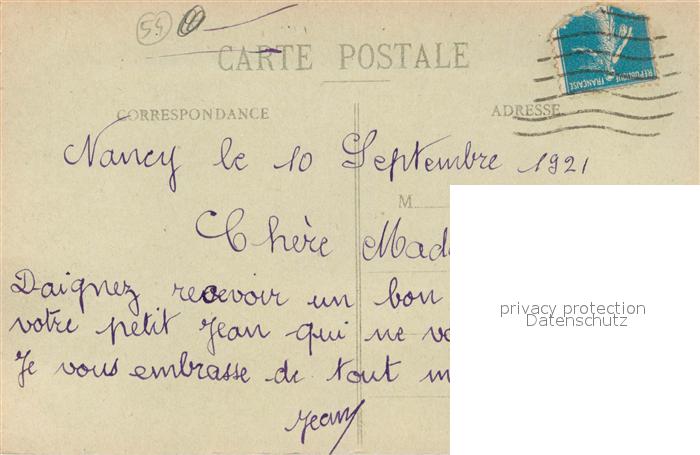 54
CARTE POSTALE
CORRESPONDANCE
ADRESSE
REPUBLIQUE FRANÇAISE
Nancy le 10 Septembre 1921
M
Chère Mad
Daignez recevoir un bon
votre petit Jean qui ne vo
Je vous embrasse de tout m
Jean
privacy protection
Datenschutz